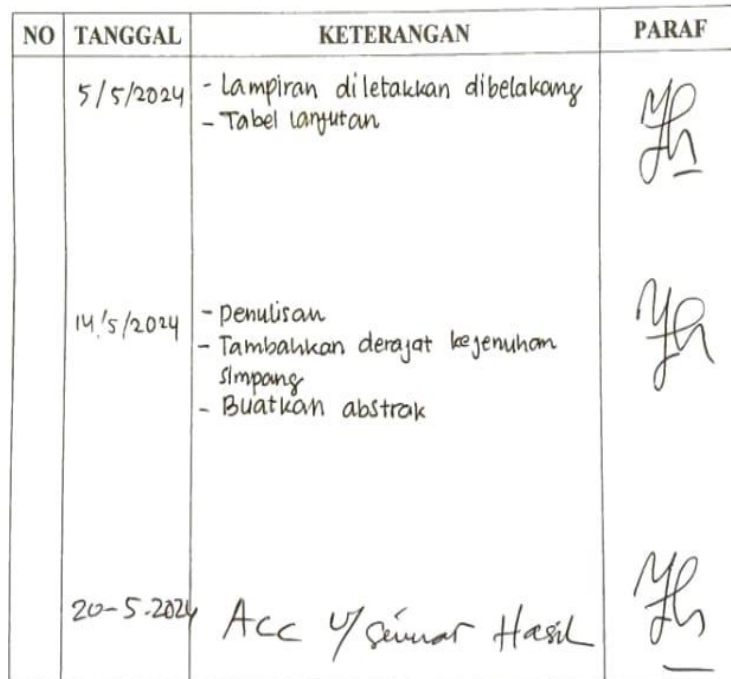 NO TANGGAL KETERANGAN PARAF
5/5/2024 - Lampiran diletakkan dibelakang
- Tabel lanjutan
14/5/2024 - Penulisan
- Tambahkan derajat kejenuhan
simpang
- Buatkan abstrak
20-5-2024 Acc U/ Seminar Hasil